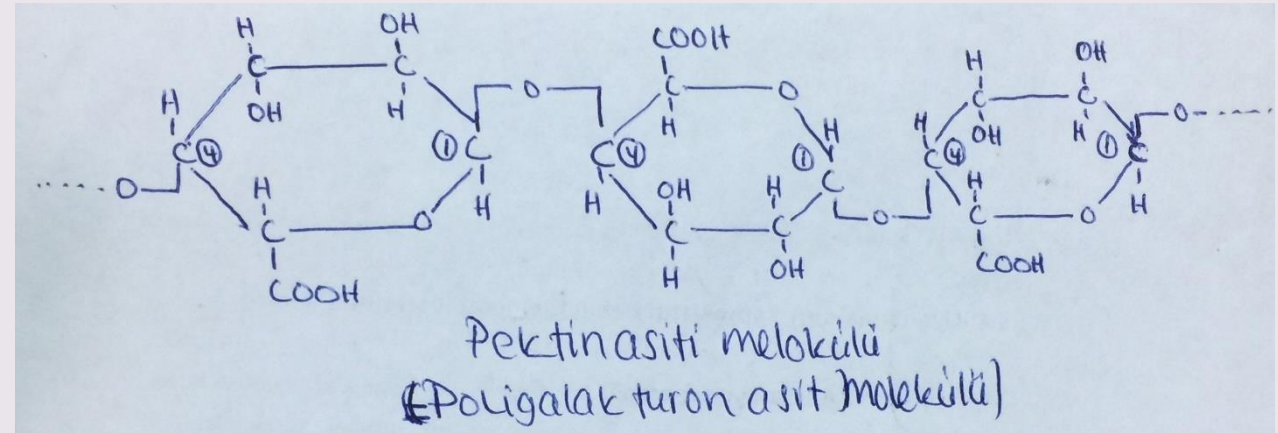 H OH COOH H OH
C C O C O C C O
H OH H H H H OH H
C ④ ① C C ④ ① C C ④ ① C
O H H H OH H C O H O H
C O C C C O
COOH H OH COOH
Pektin asiti melokülü
(Poligalakturon asit molekülü)